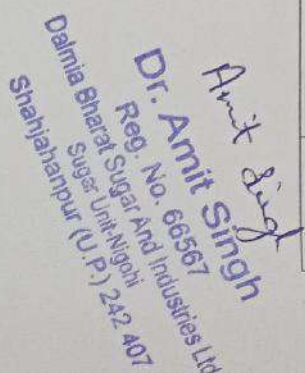 Amit Singh
Dr. Amit Singh
Reg. No. 66567
Dalmia Bharat Sugar And Industries Ltd
Sugar Unit-Nigohi
Shahjahanpur (U.P.) 242 407